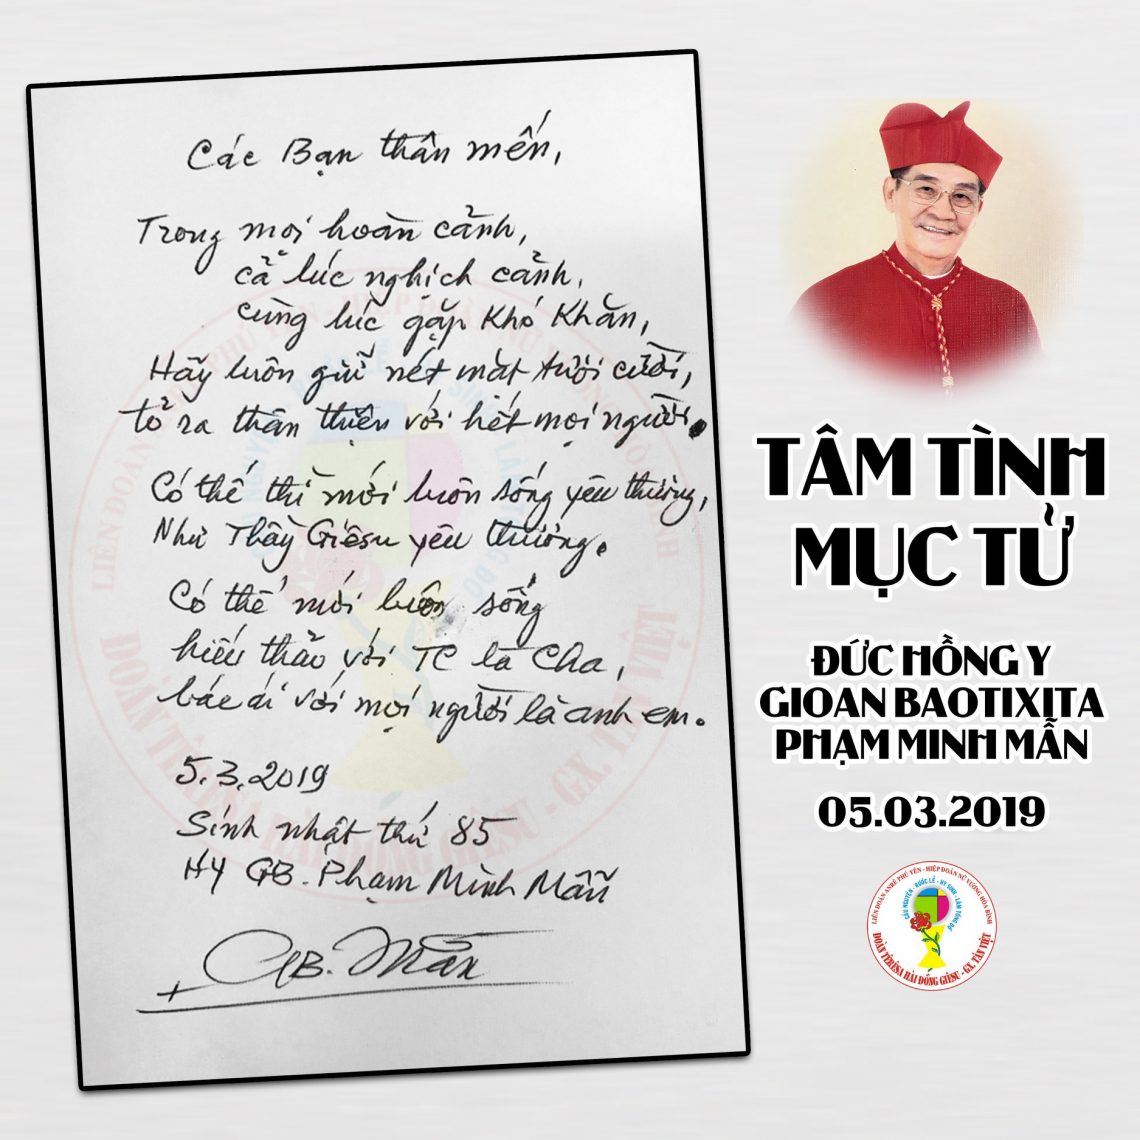 Các Bạn thân mến,
Trong mọi hoàn cảnh,
cả lúc nghịch cảnh,
cùng lúc gặp khó khăn,
Hãy luôn giữ nét mặt tươi cười,
tỏ ra thân thiện với hết mọi người.
Có thế thì mới luôn sống yêu thương,
Như Thầy Giêsu yêu thương.
Có thế mới luôn sống
hiếu thảo với TC là Cha,
bác ái với mọi người là anh em.
5.3.2019
Sinh nhật thứ 85
HY GB. Phạm Minh Mẫn
GB. Mẫn
TÂM TÌNH
MỤC TỬ
ĐỨC HỒNG Y
GIOAN BAOTIXITA
PHẠM MINH MẪN
05.03.2019
LIÊN ĐOÀN ANRÊ PHÚ YÊN - HIỆP ĐOÀN NỮ VƯƠNG HÒA BÌNH
CẦU NGUYỆN - RƯỚC LỄ - HY SINH - LÀM TÔNG ĐỒ
ĐOÀN TÊRÊSA HÀI ĐỒNG GIÊSU - GX. TÂN VIỆT